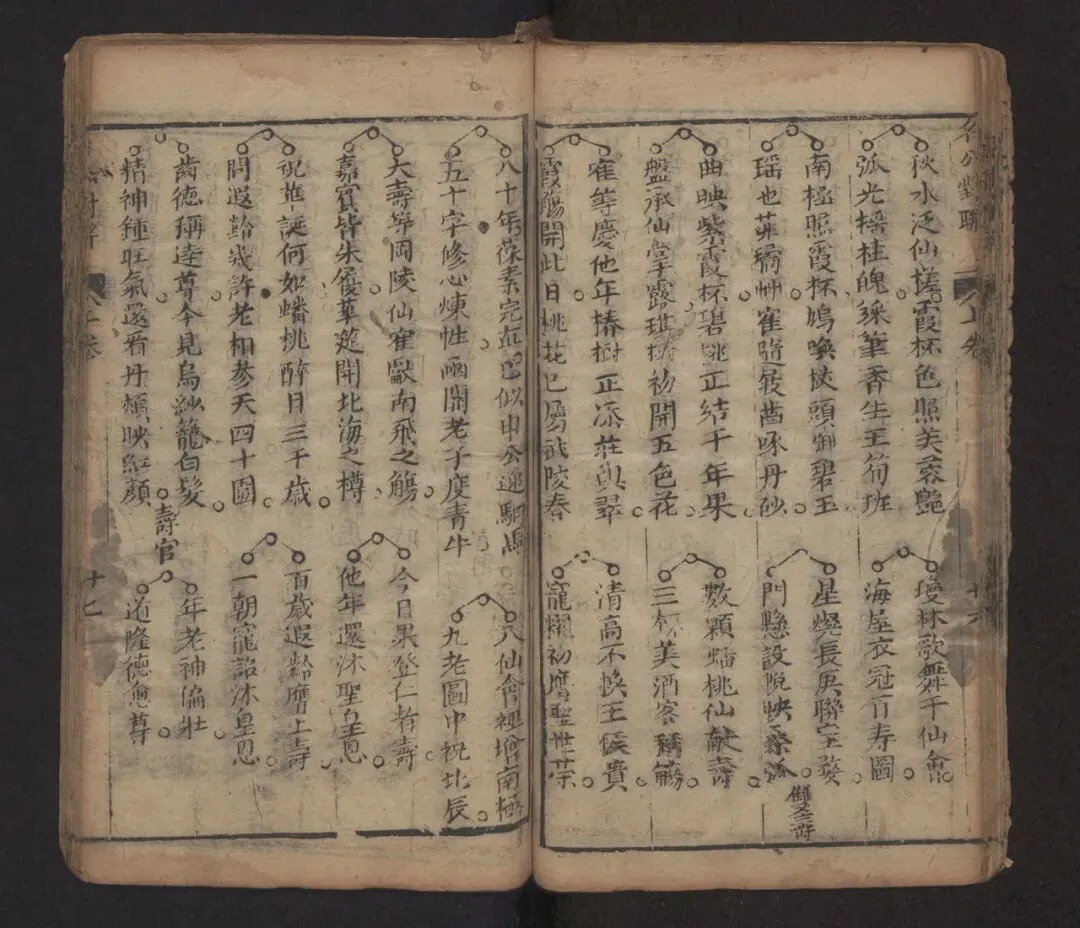 公對聯
上卷
十六
秋水泛仙槎霞杯色照芙蓉艷
弧光搖桂魄綵筆香生玉筍班
瓊林歌舞千仙會
海屋衣冠百寿圖
南極照霞杯鳩喚杖頭御碧玉
瑤也菲霜艸寉隨鼓啄丹砂
星燦長庚聯宝婺
門懸設帨映桑弧
雙壽
曲映紫霞杯碧桃正結千年果
盤承仙掌露琪樹初開五色花
數顆蟠桃仙献壽
三杯美酒客稱觴
寉筭慶他年椿樹正添莊與翠
霞觴開此日桃花已屬武陵春
清高不換王侯貴
寵耀初膺聖世榮
八十年葆素完真已似申公迎駟馬
五十字修心煉性函關老子度青牛
八仙會裡增南極
九老圖中祝北辰
大壽等岡陵仙寉獻南飛之觴
嘉賓皆朱履華筵開北海之樽
今日果登仁者壽
他年還沐聖皇恩
祝華誕何如蟠桃醉日三千歲
問遐齡幾許老相參天四十圍
百歲遐齡膺上壽
一朝寵詔沐皇恩
齒德稱逵尊今見烏紗籠白髮
精神鍾旺氣還看丹頰映紅顏
壽官
年老神偏壯
道隆德愈尊
上卷
十七